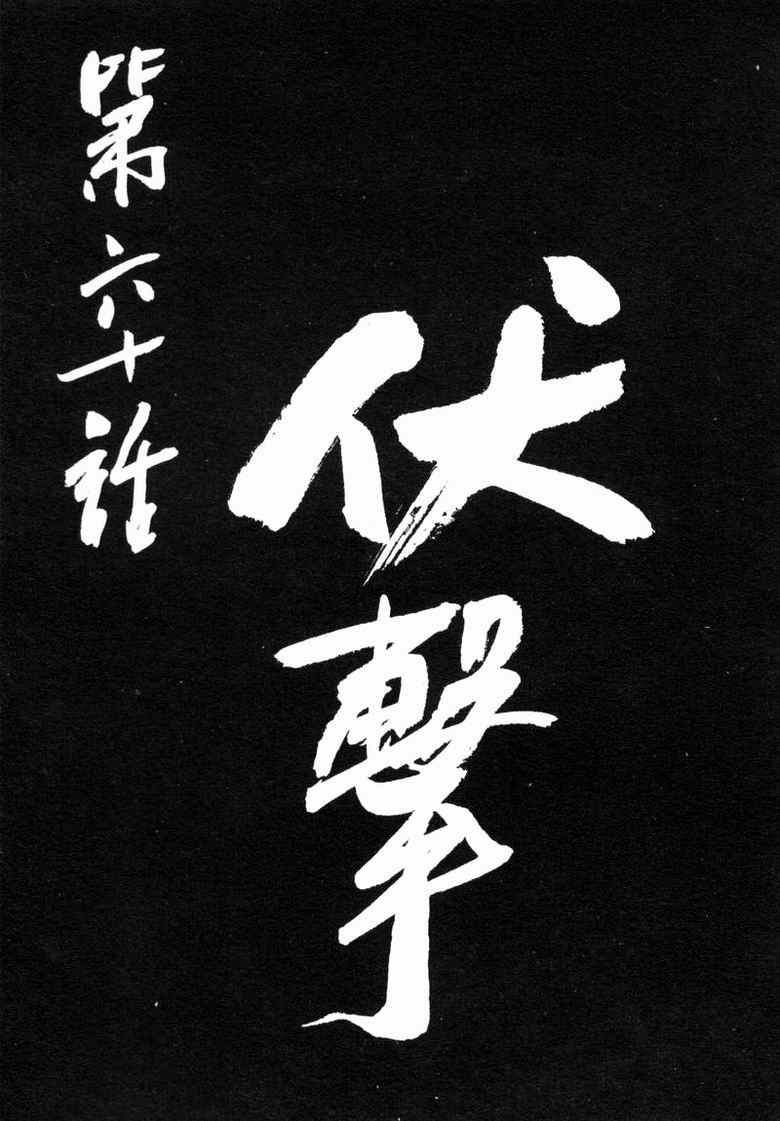 第六十話
伏撃